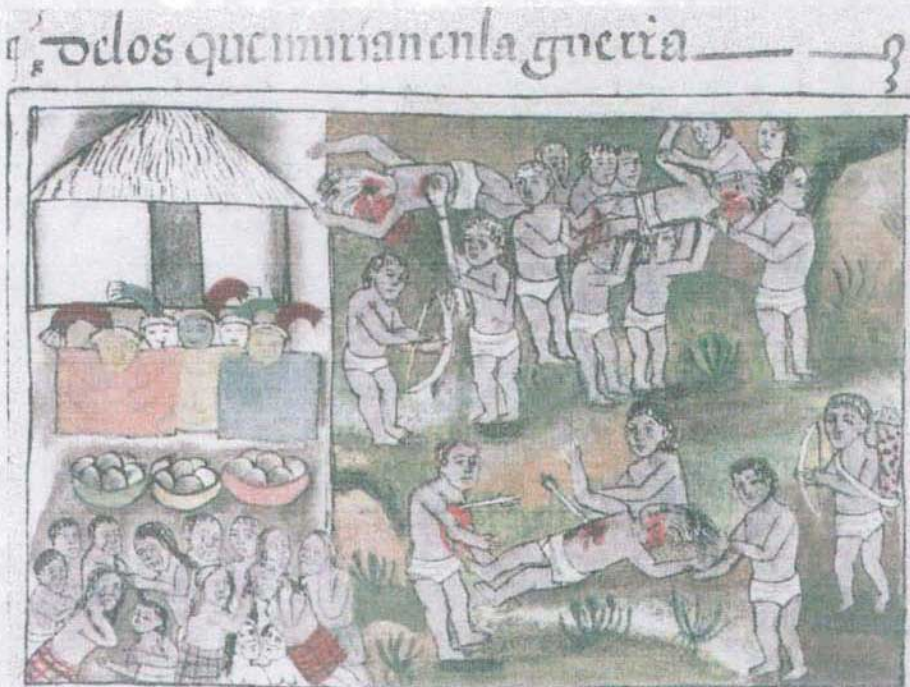 delos que murian en la guerra